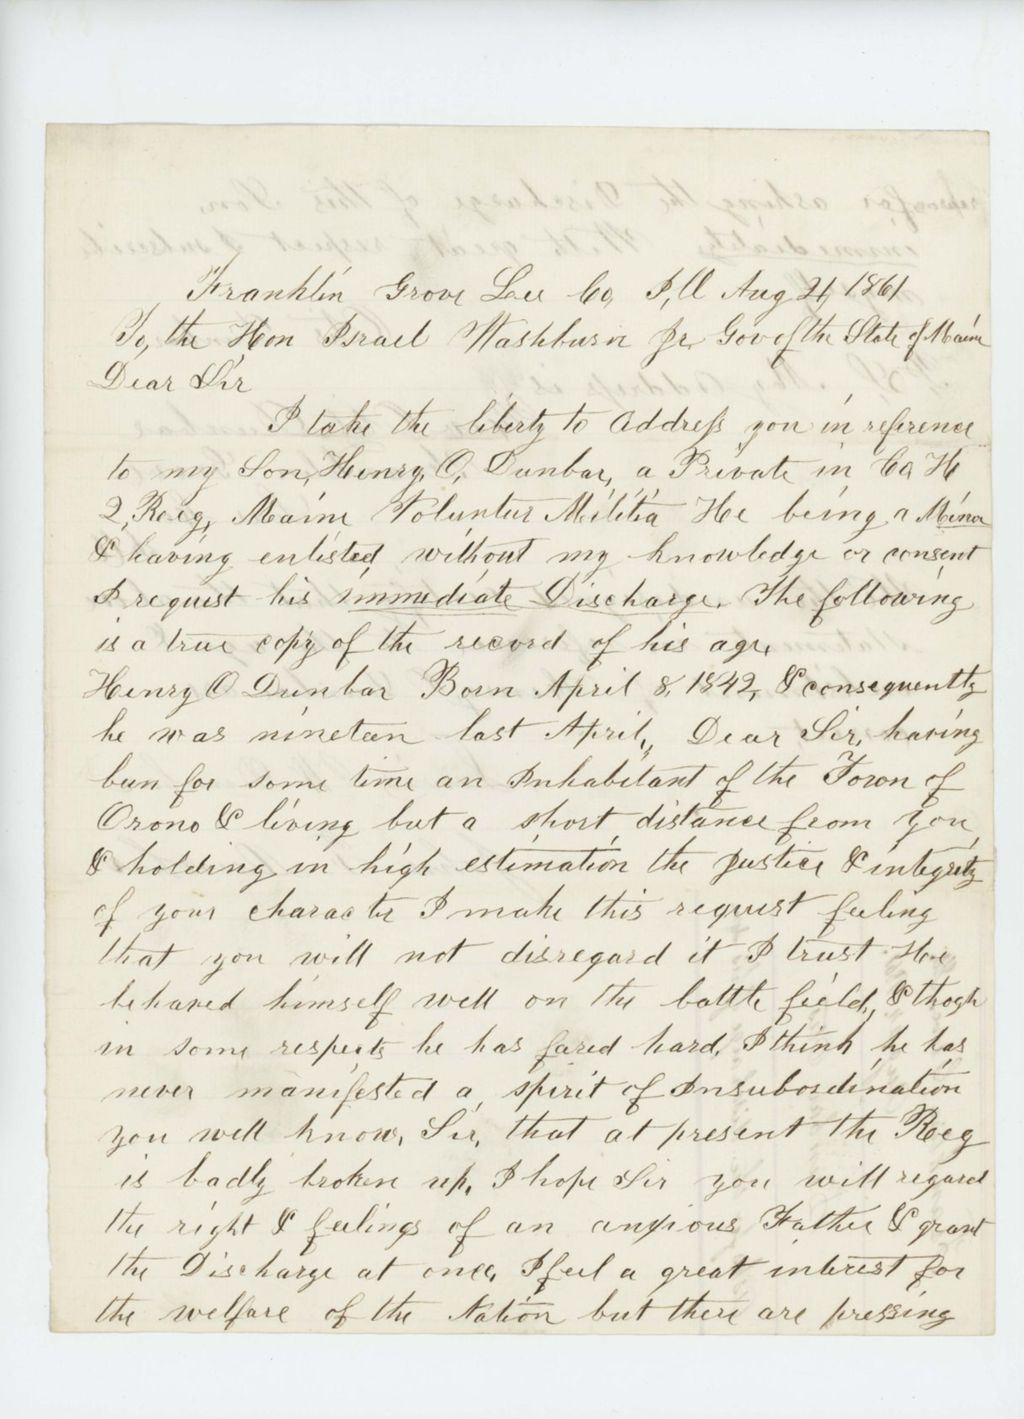 Franklin Grove Lee Co, Ill Aug 21, 1861
To, the Hon Israel Washburn Jr, Gov of the State of Maine
Dear Sir
I take the liberty to Address you in reference
to my Son, Henry, O, Dunbar, a Private in Co, H
2, Reg, Maine Volunteer Militia He being a Minor
& having enlisted without my knowledge or consent
I request his immediate Discharge. The following
is a true copy of the record of his age,
Henry O Dunbar Born April 8, 1842, & consequently
he was nineteen last April,, Dear Sir, having
been for some time an Inhabitant of the Town of
Orono & living but a short distance from you
& holding in high estimation the justice & integrity
of your character I make this request feeling
that you will not disregard it I trust He
behaved himself well on the battle field, & thogh
in some respects he has fared hard, I think he has
never manifested a spirit of Insubordination
you well know, Sir, that at present the Reg
is badly broken up, I hope Sir you will regard
the right & feelings of an anxious Father & grant
the Discharge at once, I feel a great interest for
the welfare of the Nation but there are pressing